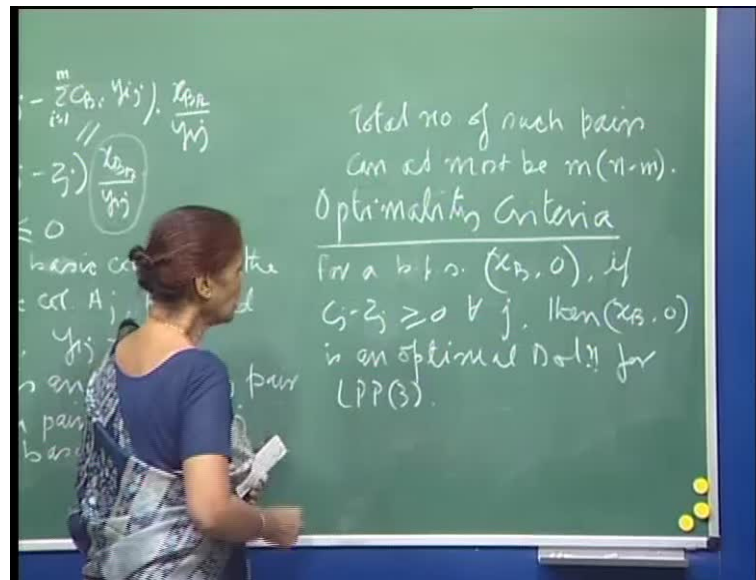 j - Σ_{i=1}^{m} c_{Bi} y_{ij}) . x_{Br}/y_{rj}
j - z_j) x_{Br}/y_{rj}
≤ 0
basic co the
col. A_j,
y_{ij}
s an pair
pair
bas
Total no of such pairs
can at most be m(n-m).
Optimality Criteria
For a b.f.s. (x_B, 0), if
c_j - z_j ≥ 0 ∀ j, then (x_B, 0)
is an optimal Soln for
LPP(3).